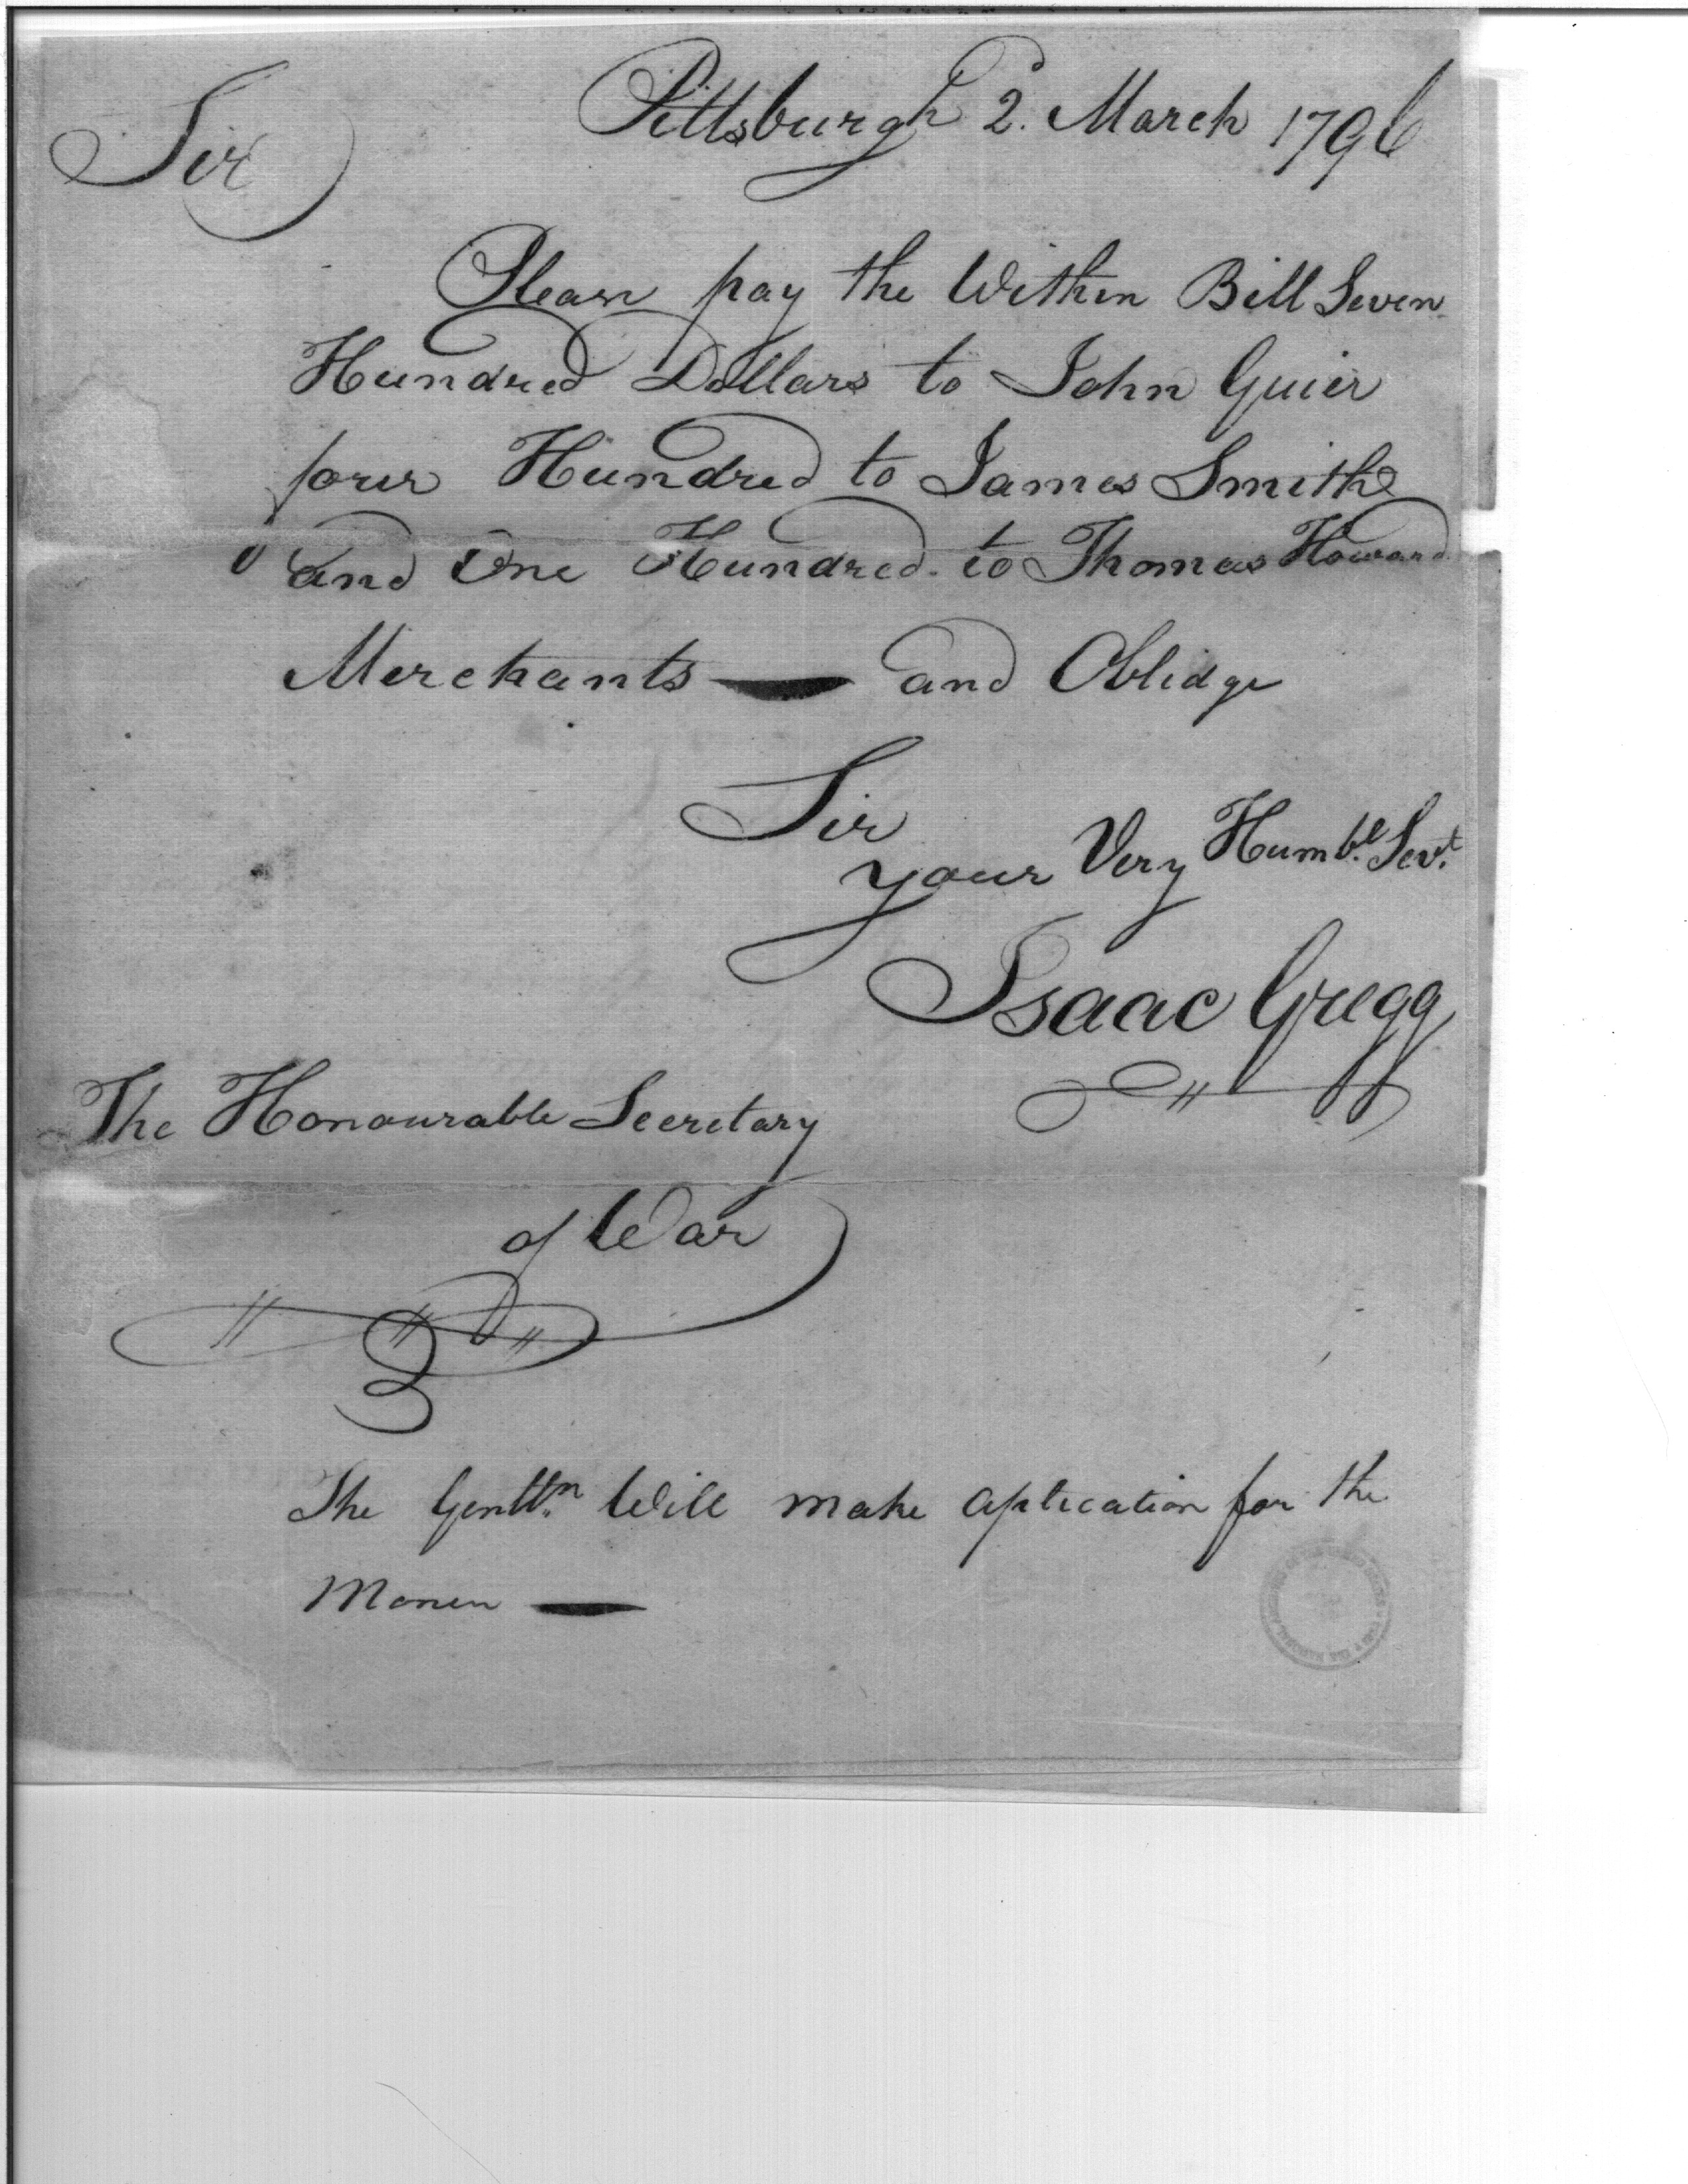 Pittsburgh 2d. March 1796
Sir
Please pay the Within Bill Seven
Hundred Dollars to John Guier
four Hundred to James Smith
and One Hundred to Thomas Howard
Merchants — and Oblidge
Sir
your Very Humble. Servt.
Isaac Gregg
The Honourable Secretary
of War
The Gentlmn. Will make aplication for the
Money —